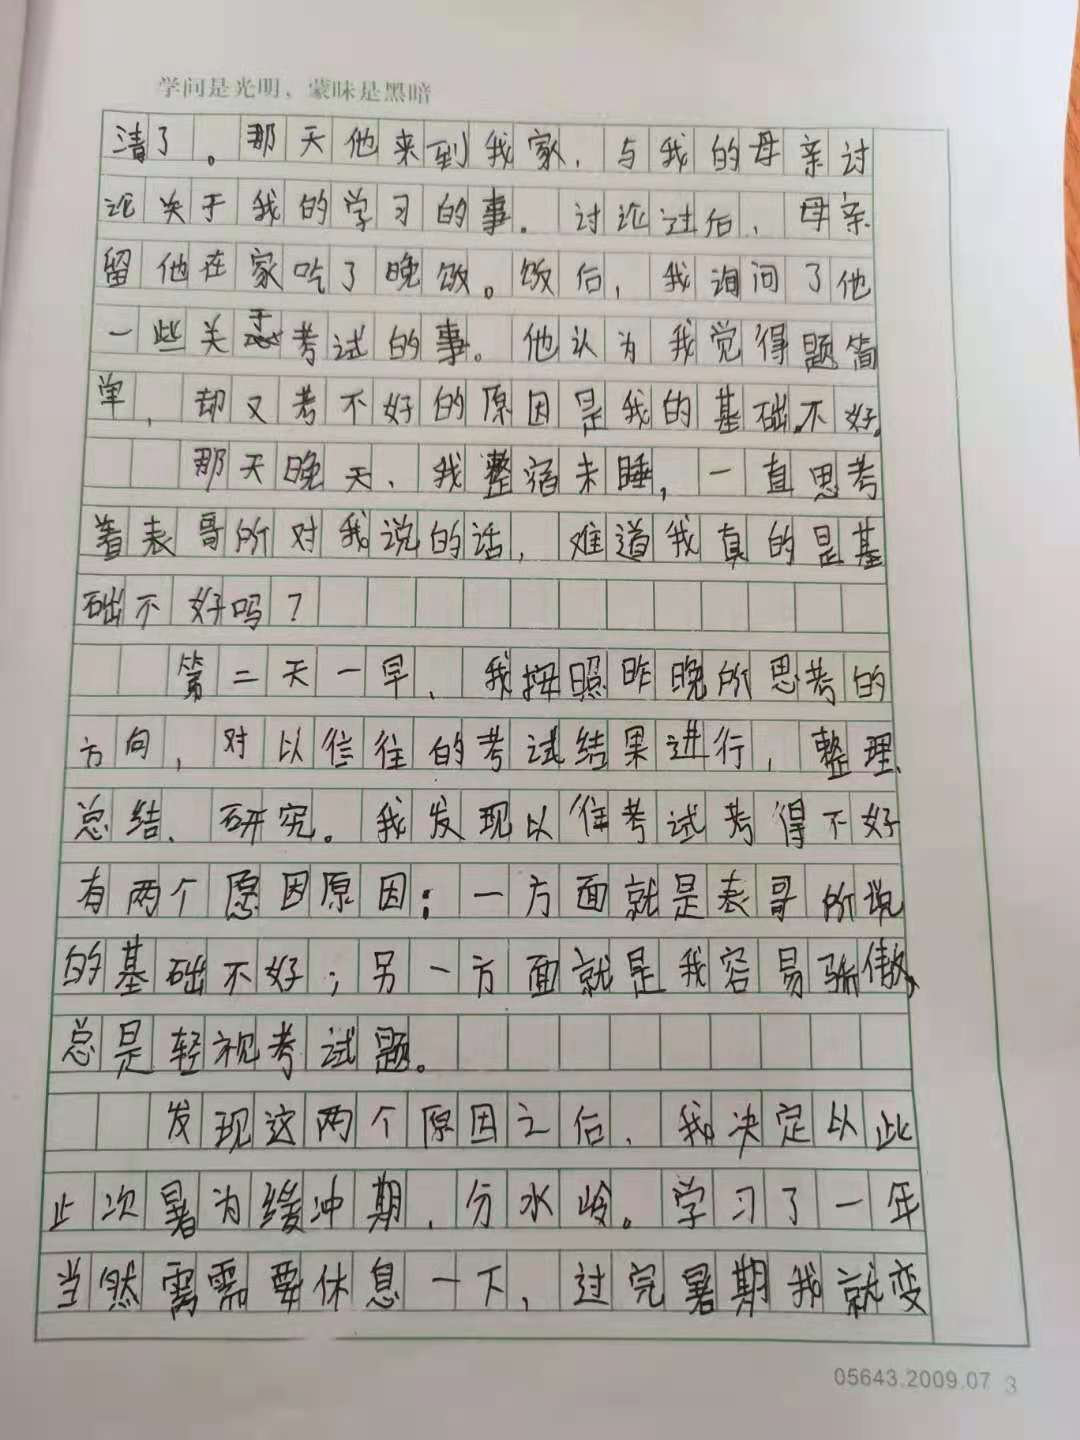 学问是光明，蒙昧是黑暗
清了。那天他来到我家，与我的母亲讨
论关于我的学习的事。讨论过后，母亲
留他在家吃了晚饭。饭后，我询问了他
一些关于考试的事。他认为我觉得题简
单，却又考不好的原因是我的基础不好。
那天晚天，我整宿未睡，一直思考
着表哥所对我说的话，难道我真的是基
础不好吗？
第二天一早，我按照昨晚所思考的
方向，对以往往的考试结果进行，整理、
总结、研究。我发现以往考试考得不好
有两个愿因原因：一方面就是表哥所说
的基础不好；另一方面就是我容易骄傲，
总是轻视考试题。
发现这两个原因之后，我决定以此
止次暑为缓冲期，分水岭。学习了一年
当然需需要休息一下，过完暑期我就变
05643.2009.07 3